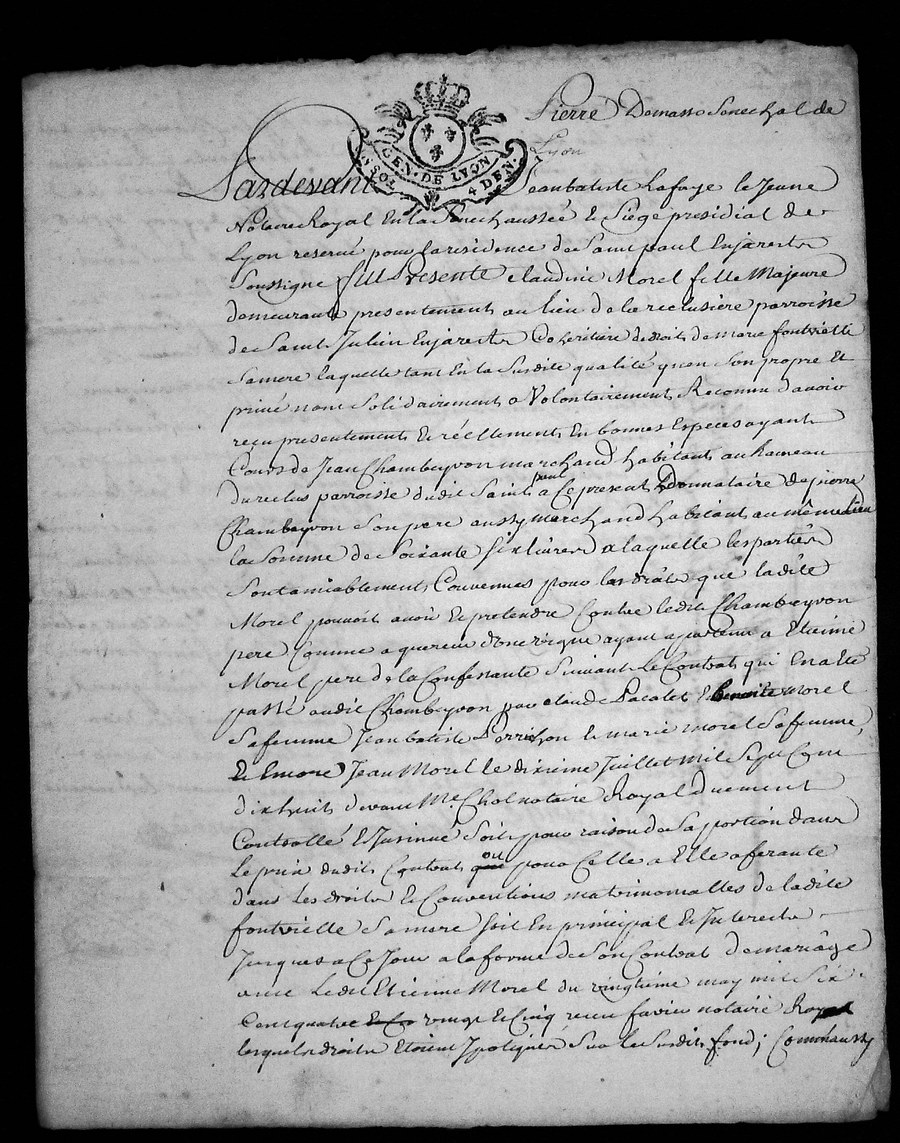 Pierre Demasso Senechal de
Lyon
GEN. DE LYON
4 DEN.
Pardevant Jean batiste Lafaye le Jeune
Notaire Royal En la Senechaussée & Siege presidial de
Lyon reservé pour la residence de Saint paul En jarest
Soussigne fut Presente claudine Morel fille Majeure
demeurante presentement au lieu de la reclusiere parroisse
de Saint Julien En jarest Coheritiere de droit de marie fontvielle
Sa mere Laquelle tant En la Susdite qualité qu'en Son propre Et
privé nom Solidairement a Volontairement Reconnu d'avoir
reçu presentement & réellement En bonnes Especes ayant
Cours de Jean Chambeyron marchand habitant au hameau
du reclus parroisse dudit Saint a Ce present Donnataire de pierre
Chambeyron Son pere aussy marchand habitant au même lieu
la Somme de Soixante Six livres a laquelle les parties
Sont amiablement Convenues pour les droits que ladite
Morel pouvoit avoir & pretendre Contre ledit Chambeyron
pere Comme aquereur ayant apartenu a Etienne
Morel pere de la Confessante Suivant Le Contrat qui En a Eté
passé audit Chambeyron par claude Pacalet & benoite Morel
Sa femme Jean batiste & marie morel Sa femme
Et Encore Jean Morel le dixieme Juillet Mil Sept Cent
dix huit devant Me. Chol notaire Royal Duement
Controllé & Insinué Soit pour raison de Sa portion dans
Le prix dudit Contrat ou pour Celle a Elle aferante
dans Les droits & Conventions matrimonialles de ladite
fontvielle Sa mere Soit En principal & Interests
Jusques a Ce Jour a la forme de Son Contrat de mariage
avec Ledit Etienne Morel du vingtieme may mil Six
Cent quatre vingt & Cinq reçu favier notaire Royal
lesquels droits Etoient Ipotequés Sur les Susdits fond; Comm'aussy